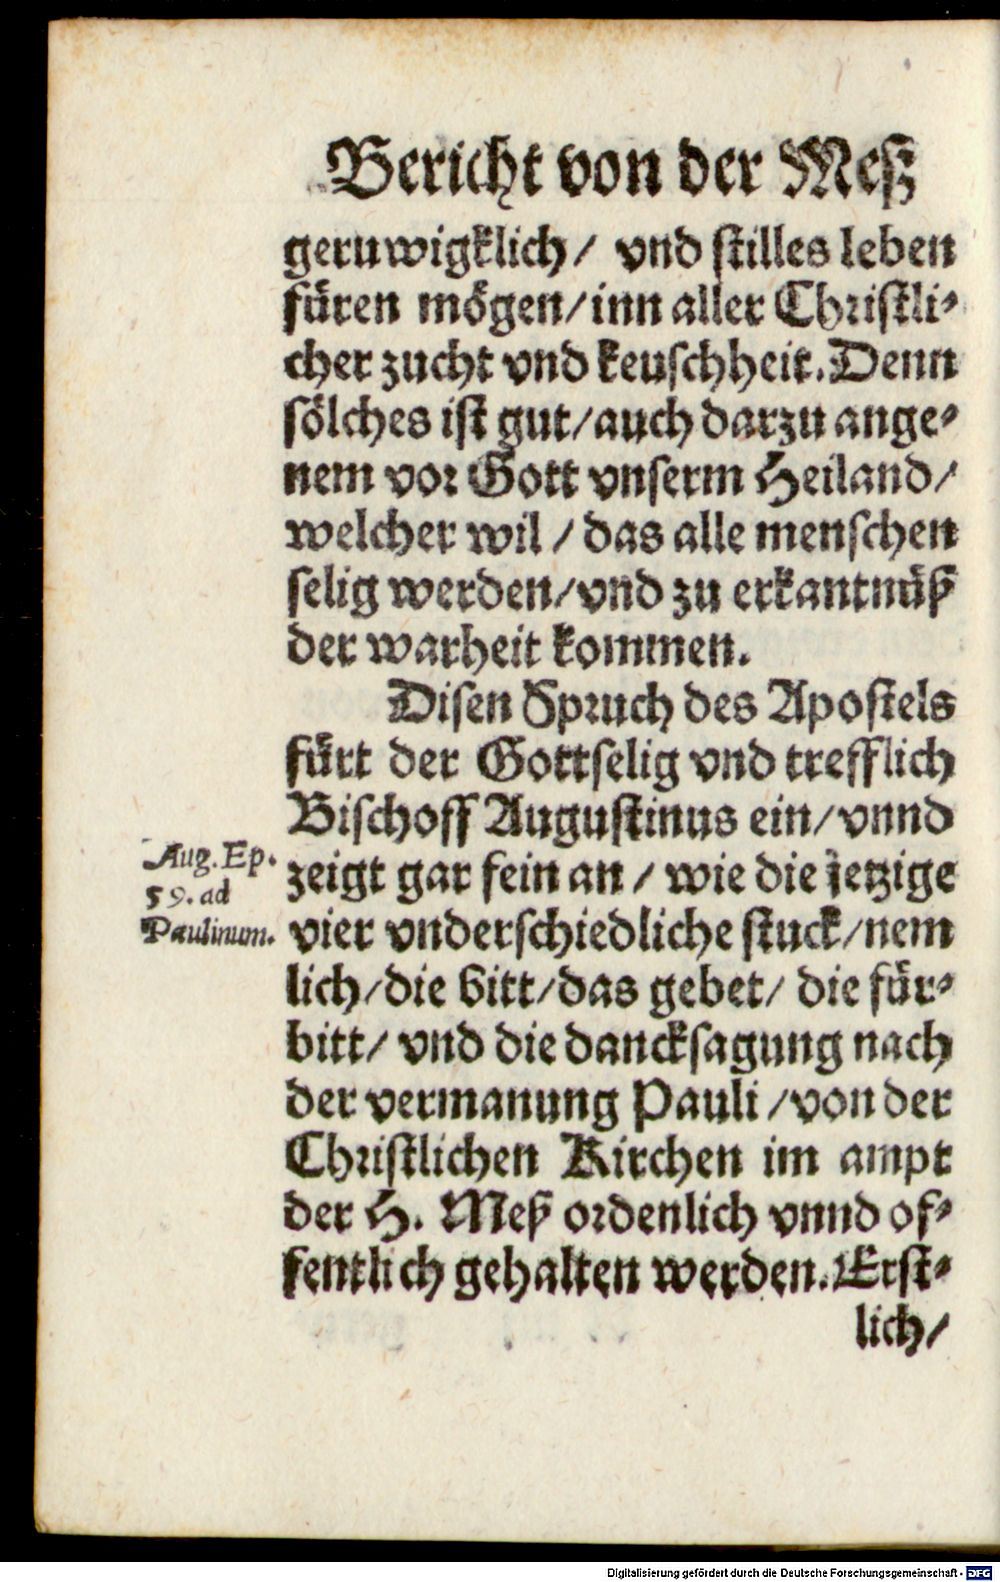 Bericht von der Meß
geruwigklich/ vnd stilles leben
füren mögen/inn aller Christli⸗
cher zucht vnd keuschheit. Denn
sölches ist gut/auch darzu ange⸗
nem vor Gott vnserm Heiland/
welcher wil/ das alle menschen
selig werden/vnd zu erkantnüß
der warheit kommen.
Disen Spruch des Apostels
fürt der Gottselig vnd trefflich
Bischoff Augustinus ein/vnnd
zeigt gar fein an/ wie die jetzige
vier vnderschiedliche stuck/nem
lich/die bitt/das gebet/ die für⸗
bitt/ vnd die dancksagung nach
der vermanung Pauli/von der
Christlichen Kirchen im ampt
der H. Meß ordenlich vnnd of⸗
fentlich gehalten werden. Erst⸗
lich/
Aug. Ep.
59. ad
Paulinum.
Digitalisierung gefördert durch die Deutsche Forschungsgemeinschaft - DFG